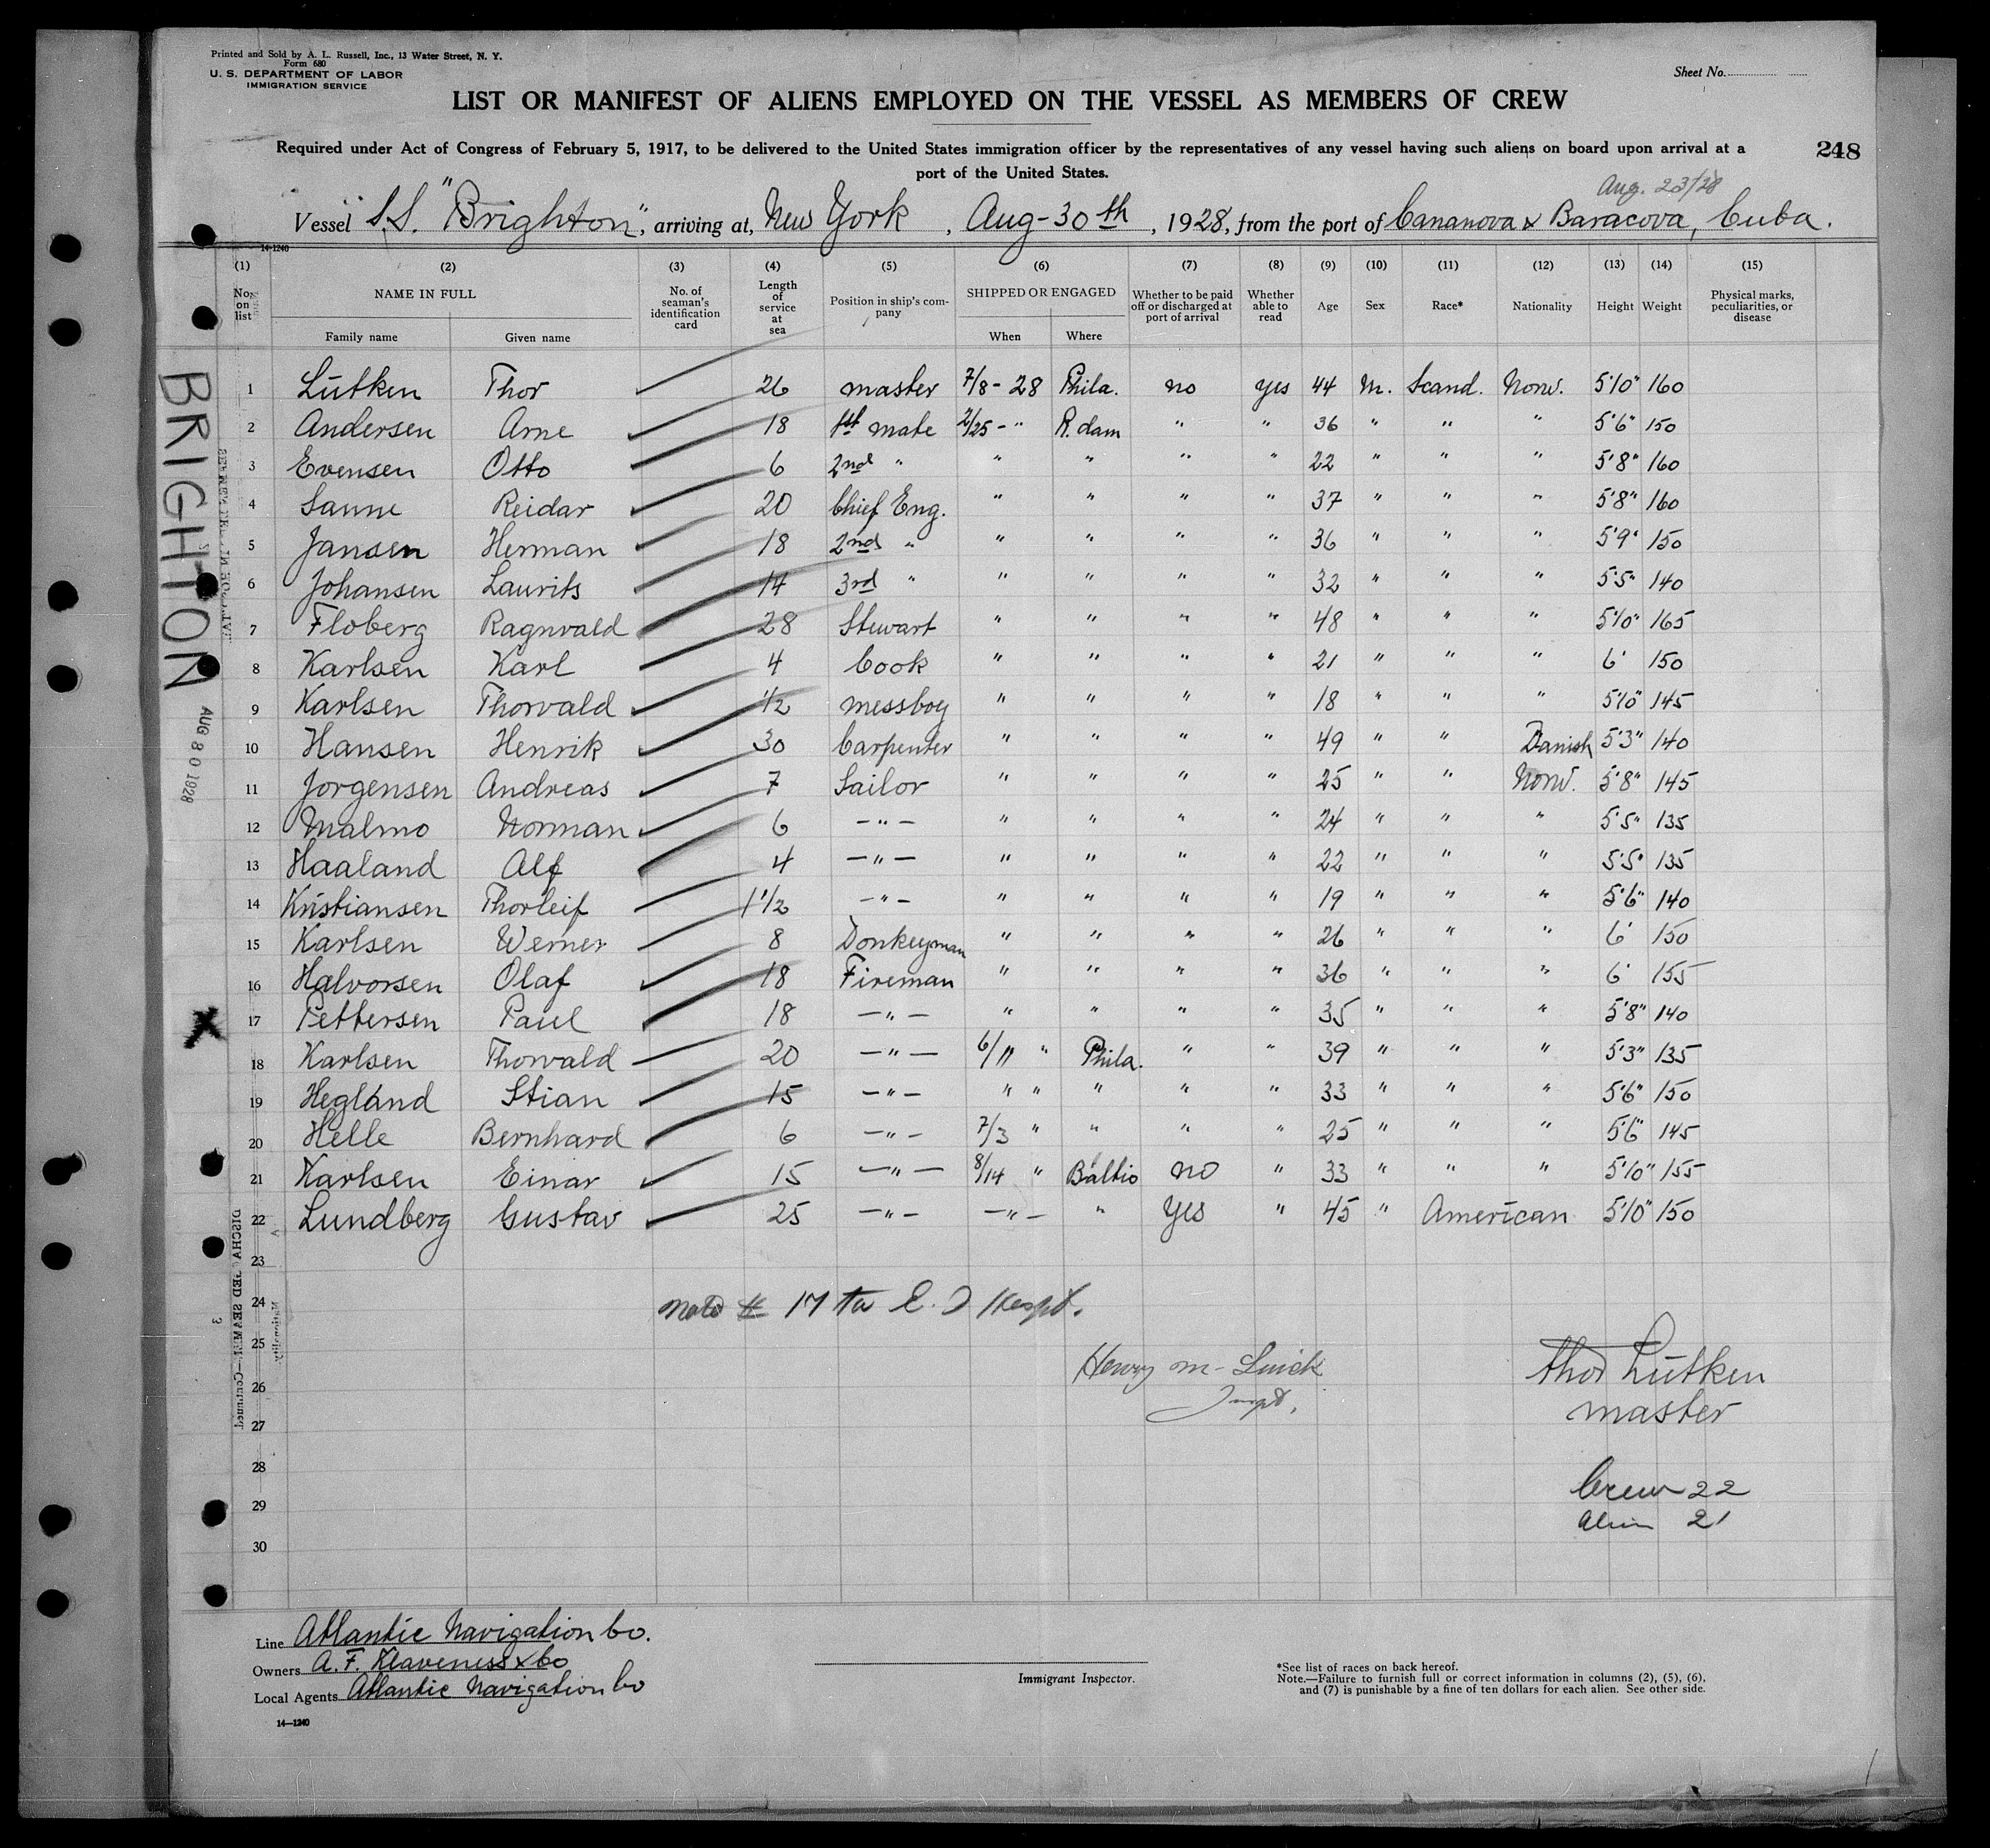 Printed and Sold by A. L. Russell, Inc., 13 Water Street, N. Y.
Form 680
U. S. DEPARTMENT OF LABOR
IMMIGRATION SERVICE
Sheet No.
LIST OR MANIFEST OF ALIENS EMPLOYED ON THE VESSEL AS MEMBERS OF CREW
Required under Act of Congress of February 5, 1917, to be delivered to the United States immigration officer by the representatives of any vessel having such aliens on board upon arrival at a
port of the United States.
248
Aug. 23/28
Vessel S.S. "Brighton", arriving at, New York, Aug-30th, 1928, from the port of Cananova & Baracova, Cuba.
14-1240
(1) (2) (3) (4) (5) (6) (7) (8) (9) (10) (11) (12) (13) (14) (15)
No. on list NAME IN FULL Family name Given name No. of seaman's identification card Length of service at sea Position in ship's company SHIPPED OR ENGAGED When Where Whether to be paid off or discharged at port of arrival Whether able to read Age Sex Race* Nationality Height Weight Physical marks, peculiarities, or disease
1 Lütken Thor 26 master 7/8-28 Phila. no yes 44 M. Scand. Norw. 5'10" 160
2 Andersen Arne 18 1st mate 2/25-" R.dam " " 36 " " " 5'6" 150
3 Evensen Otto 6 2nd " " " " " 22 " " " 5'8" 160
4 Sanne Reidar 20 Chief Eng. " " " " 37 " " " 5'8" 160
5 Jansen Herman 18 2nd " " " " " 36 " " " 5'9" 150
6 Johansen Laurits 14 3rd " " " " " 32 " " " 5'5" 140
7 Floberg Ragnvald 28 Stewart " " " " 48 " " " 5'10" 165
8 Karlsen Karl 4 Cook " " " " 21 " " " 6' 150
9 Karlsen Thorvald 1/2 messboy " " " " 18 " " " 5'10" 145
10 Hansen Henrik 30 Carpenter " " " " 49 " " Danish 5'3" 140
11 Jorgensen Andreas 7 Sailor " " " " 25 " " Norw. 5'8" 145
12 Malmo Norman 6 -"- " " " " 24 " " " 5'5" 135
13 Haaland Alf 4 -"- " " " " 22 " " " 5'5" 135
14 Kristiansen Thorleif 1 1/2 -"- " " " " 19 " " " 5'6" 140
15 Karlsen Werner 8 Donkeyman " " " " 26 " " " 6' 150
16 Halvorsen Olaf 18 Fireman " " " " 36 " " " 6' 155
17 Pettersen Paul 18 -"- " " " " 35 " " " 5'8" 140
18 Karlsen Thorvald 20 -"- 6/11 " Phila. " " 39 " " " 5'3" 135
19 Hegland Stian 15 -"- " " " " " 33 " " " 5'6" 150
20 Helle Bernhard 6 -"- 7/3 " " " " 25 " " " 5'6" 145
21 Karlsen Einar 15 -"- 8/14 " Baltio no " 33 " " " 5'10" 155
22 Lundberg Gustav 25 -"- -"- " Yes " 45 " American 5'10" 150
23
24
25
26
27
28
29
30
BRIGHTON
AUG 30 1928
X
Note # 17 to E. I Hospt.
Henry M-
Inspt.
Thor Lütken
master
Crew 22
Alien 21
Line Atlantic Navigation Co.
Owners A. F. Klaveness & Co
Local Agents Atlantic Navigation Co
14—1240
Immigrant Inspector.
*See list of races on back hereof.
Note.—Failure to furnish full or correct information in columns (2), (5), (6),
and (7) is punishable by a fine of ten dollars for each alien. See other side.